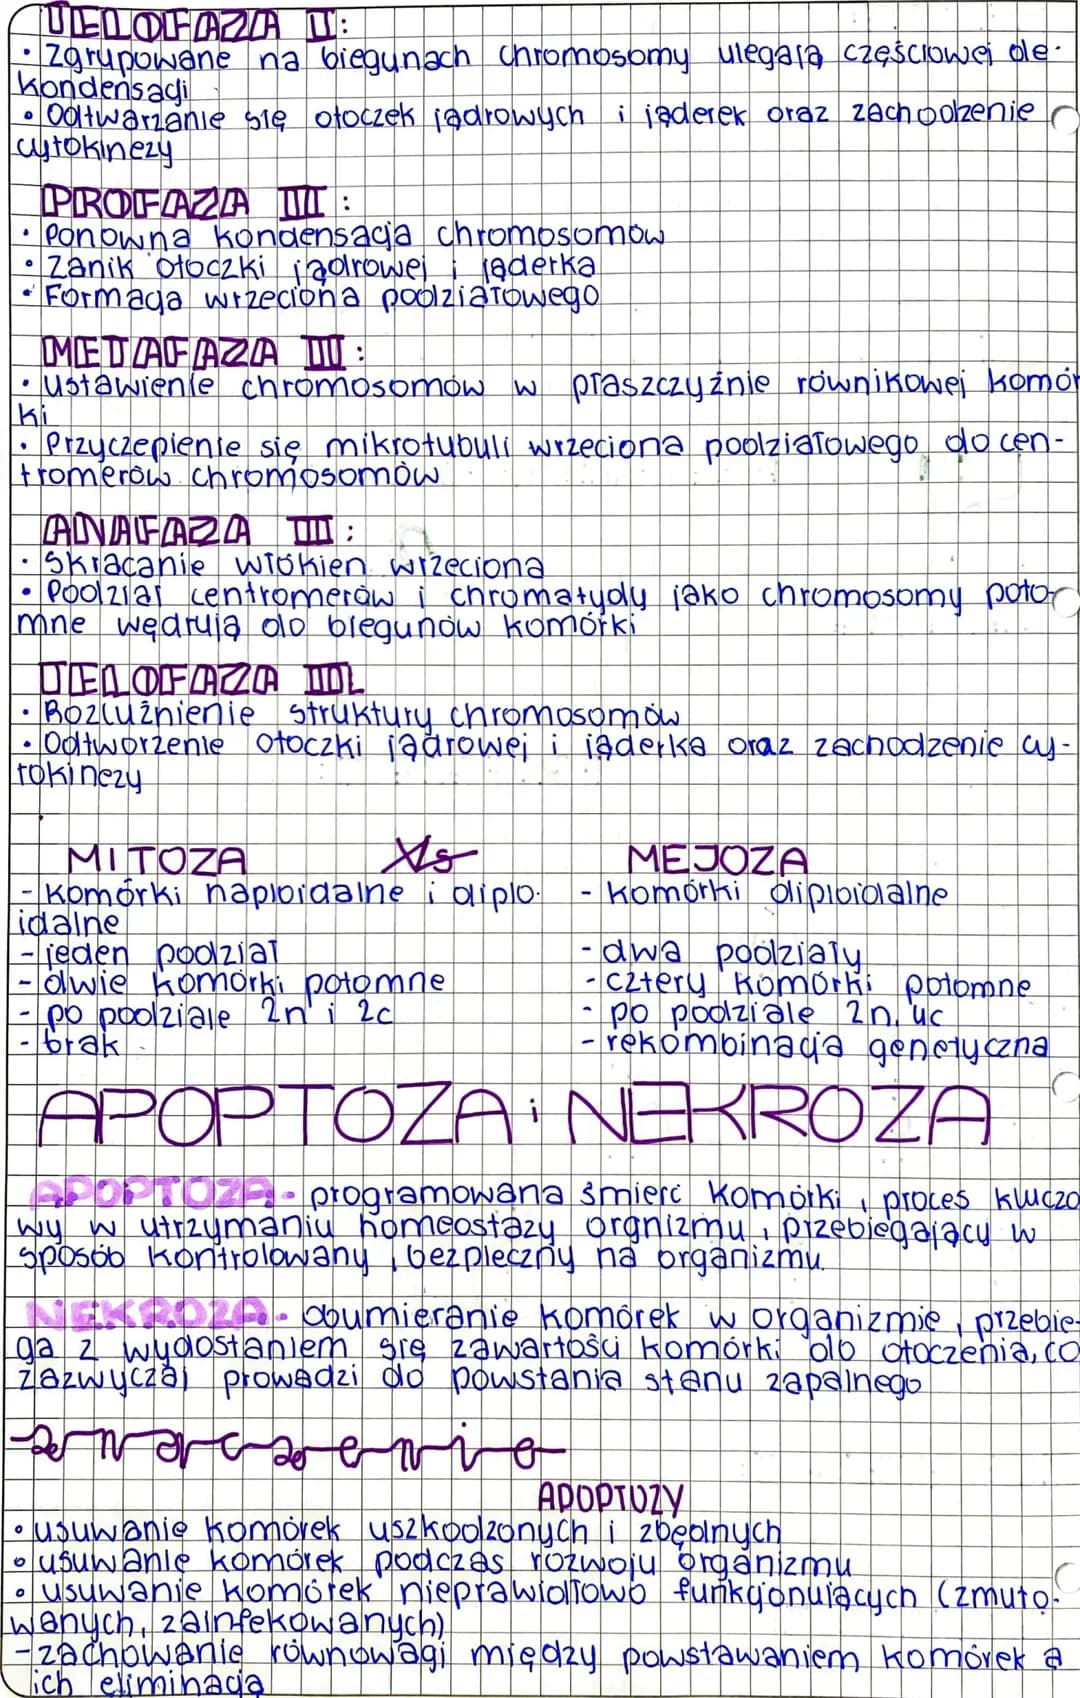 TELOFAZA II:
• Zgrupowane na biegunach chromosomy ulegają częściowej de-
kondensacji
• Odtwarzanie się otoczek jądrowych i jąderek oraz zachodzenie
cytokinezy
PROFAZA III:
• Ponowna kondensacja chromosomów
• Zanik otoczki jądrowej i jąderka
• Formacja wrzeciona podziałowego
METAFAZA III:
• Ustawienie chromosomów w płaszczyźnie równikowej komór
ki
• Przyczepienie się mikrotubuli wrzeciona podziałowego do cen-
tromerów chromosomów
ANAFAZA III:
• Skracanie włókien wrzeciona
• Podział centromerów i chromatydy jako chromosomy poto-
mne wędrują do biegunów komórki
TELOFAZA III
• Rozluźnienie struktury chromosomów
• Odtworzenie otoczki jądrowej i jąderka oraz zachodzenie cy-
tokinezy
MITOZA Vs MEJOZA
- komórki haploidalne i diplo- - komórki diploidalne
idalne
- jeden podział - dwa podziały
- dwie komórki potomne - cztery komórki potomne
- po podziale 2n i 2c - po podziale 2n, uc
- brak - rekombinacja genetyczna
APOPTOZA i NEKROZA
APOPTOZA - programowana śmierć komórki, proces kluczo
wy w utrzymaniu homeostazy orgnizmu, przebiegający w
sposób kontrolowany, bezpieczny na organizmu.
NEKROZA - obumieranie komórek w organizmie, przebie-
ga z wydostaniem się zawartości komórki do otoczenia, co
zazwyczaj prowadzi do powstania stanu zapalnego
znaczenie
APOPTOZY
• usuwanie komórek uszkodzonych i zbędnych
• usuwanie komórek podczas rozwoju organizmu
• usuwanie komórek nieprawidłowo funkcjonujących (zmuto-
wanych, zainfekowanych)
- zachowanie równowagi między powstawaniem komórek a
ich eliminacją